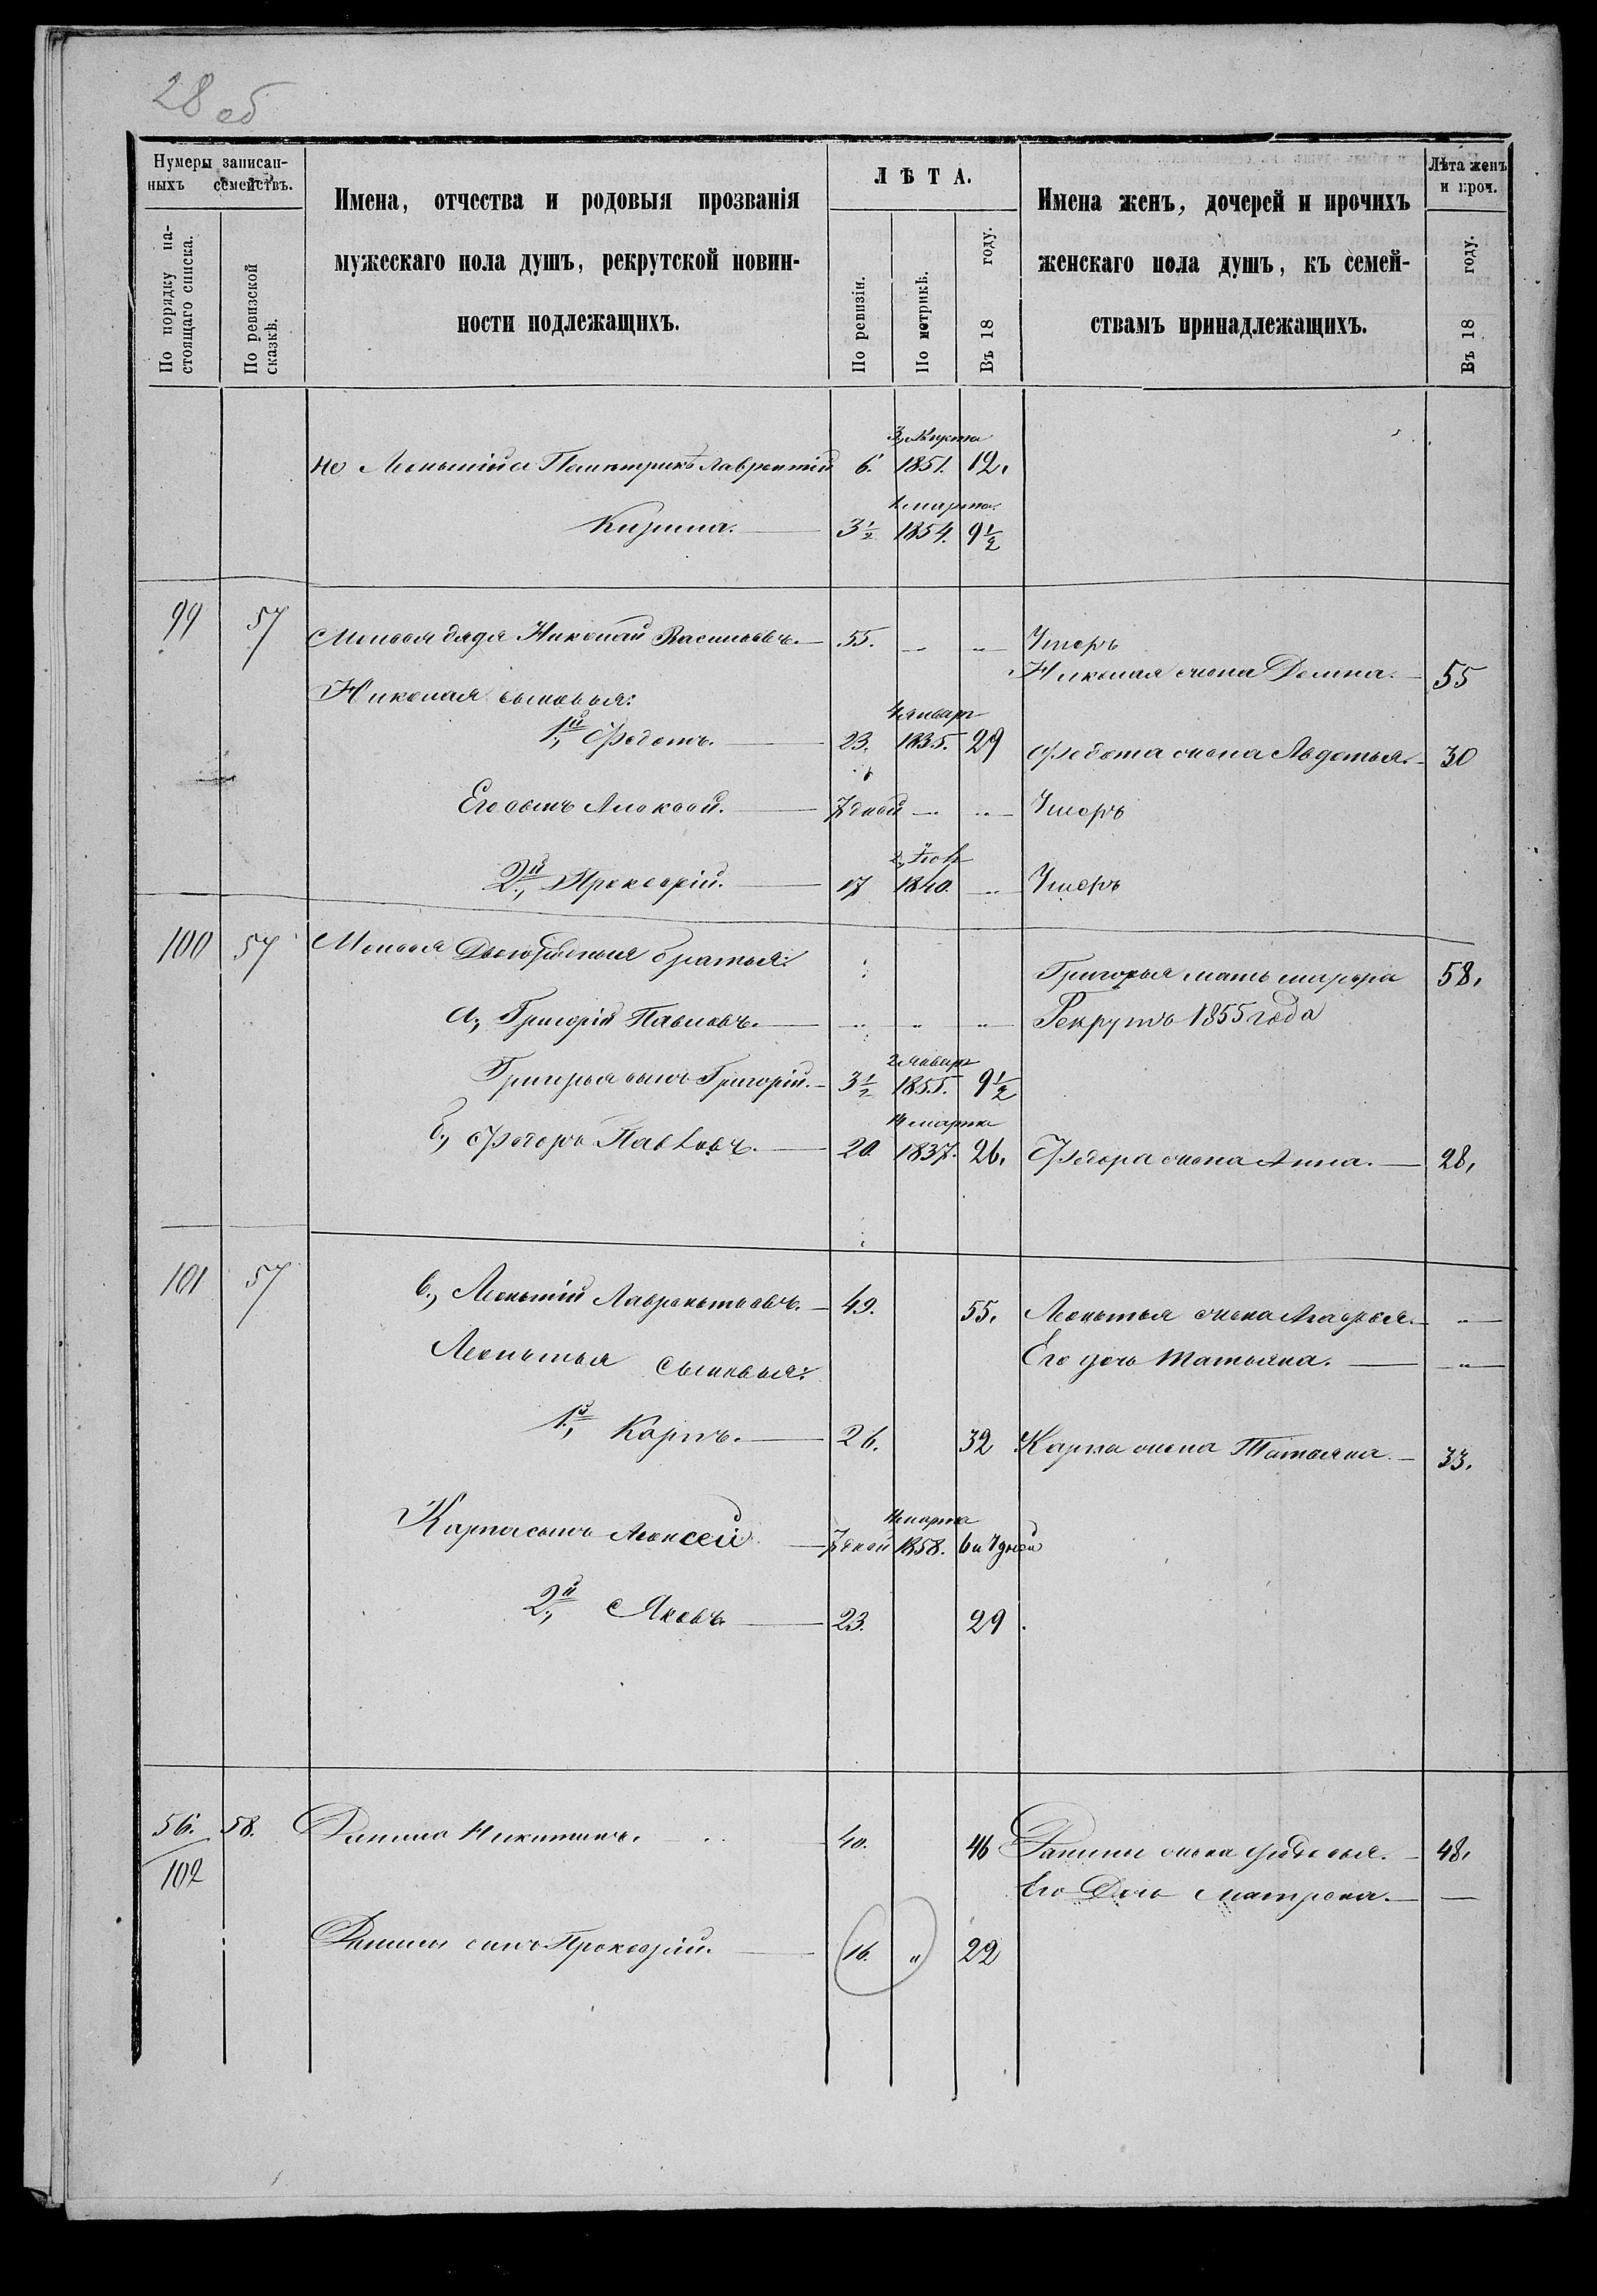 28 об
Нумеры записан-
ныхъ семействъ.
По порядку на-
стоящаго списка.
По ревизской
сказкѣ.
Имена, отчества и родовыя прозванія
мужескаго пола душъ, рекрутской повин-
ности подлежащихъ.
ЛѢТА.
По ревизіи.
По метрикѣ.
Въ 18 году.
Имена женъ, дочерей и прочихъ
женскаго пола душъ, къ семей-
ствамъ принадлежащихъ.
Лѣта женъ
и проч.
Въ 18 году.
Лаврентій 6. 1851. 12.
1 марта
Кирила. 3½ 1854. 9½
99 57 дядя Николай Васильевъ. 55. Умеръ
Николая жена Домна. 55
Николая сыновья:
4 январ
1й, Федотъ. 23. 1835. 29 Федота жена Авдотья. 30
Его сынъ Алексей. 7 дней Умеръ
2й, Прокофій. 17 1840. Умеръ
100 57 Двоюродныя братья:
Григорья мать 58.
а, Григорій Павловъ. Рекрутъ 1855 года
2 январ
Григорья сынъ Григорій. 3½ 1855. 9½
14 марта
б, Федоръ Павловъ. 20. 1837. 26. Федора жена Анна. 28.
101 57 в, Леонтій Лаврентьевъ. 49. 55. Леонтья жена
Его дочь Татьяна.
Леонтья сыновья:
1й, Карпъ. 26. 32 Карпа жена Татьяна. 33.
4 марта
Карпа сынъ Алексей 7 дней 1858. 6 и 7 дней
2й, Яковъ 23. 29
56. 58. Данило Никитинъ. 40. 46 Данилы жена Федосья. 48.
102
Его Дочь Матрена.
Данилы сынъ Прокофій. 16. " 22